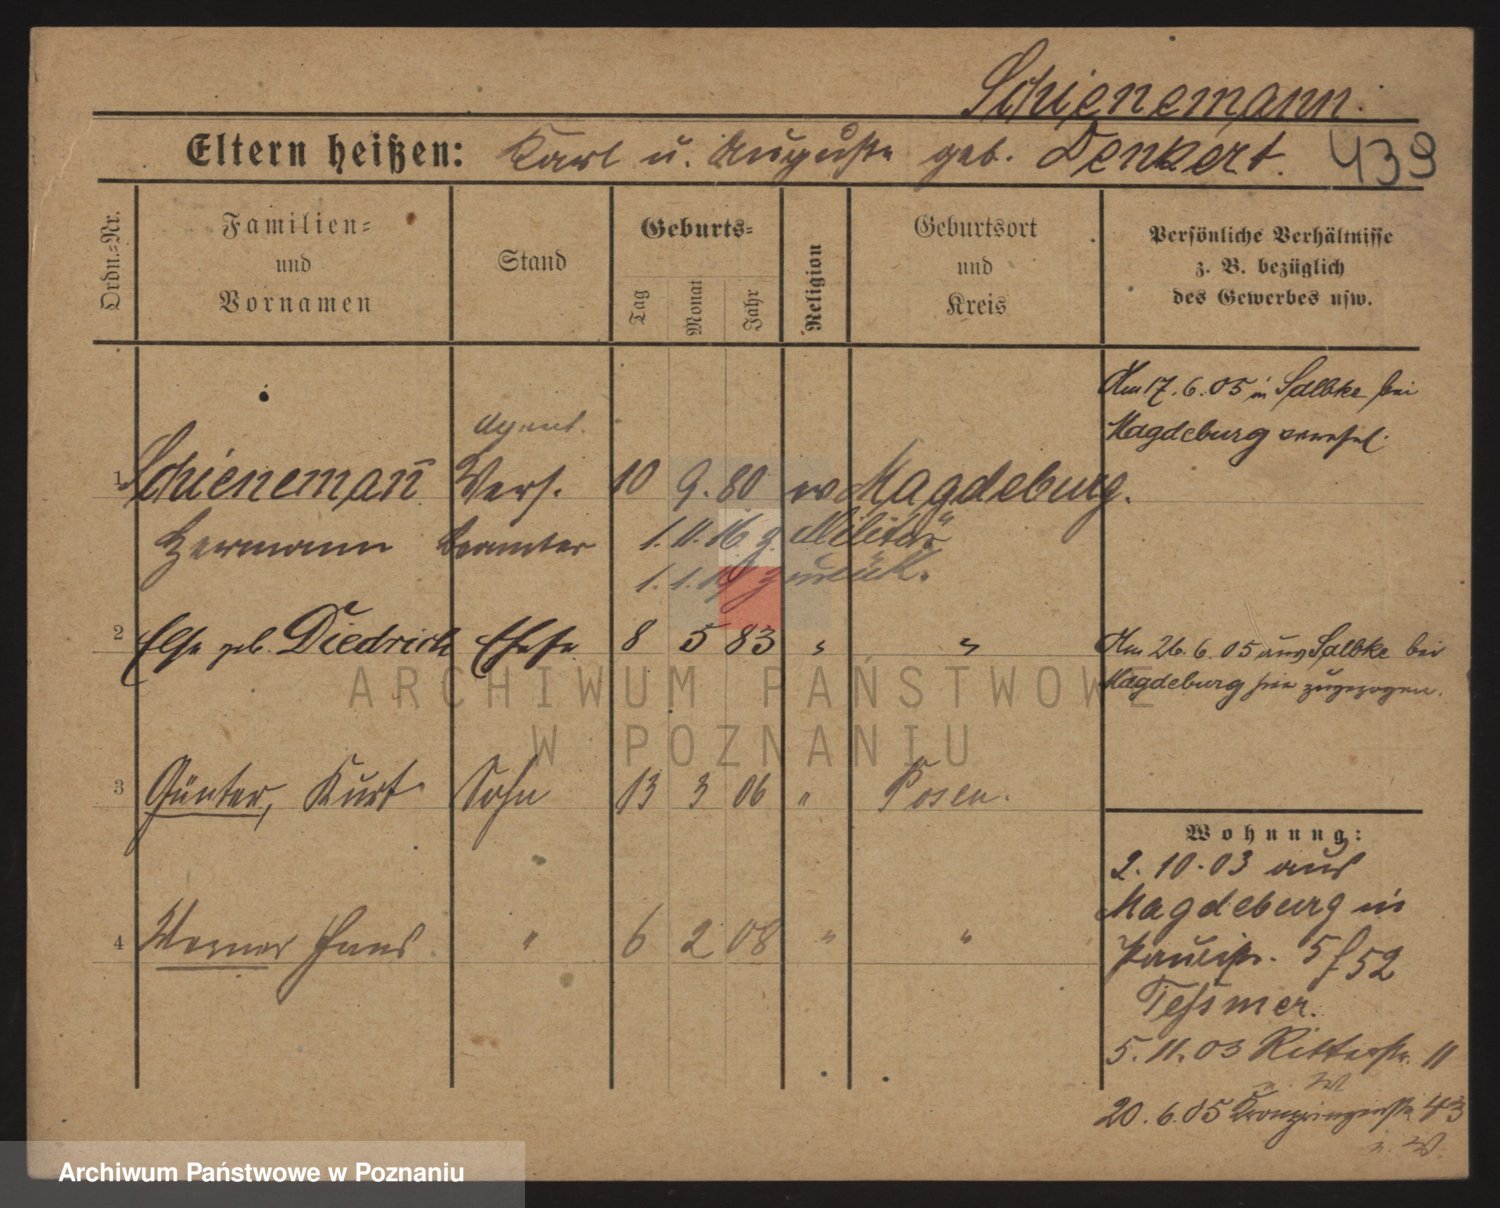 Schienemann.
Eltern heißen: Karl u. Auguste geb. Denkert. 439
Ordn.=Nr.
Familien=
und
Vornamen
Stand
Geburts=
Tag
Monat
Jahr
Religion
Geburtsort
und
Kreis
Persönliche Verhältnisse
z. B. bezüglich
des Gewerbes usw.
Am 17. 6. 05 in Salbke bei
Magdeburg
Agent.
1 Schienemañ Vers. 10 9. 80 ev Magdeburg.
Hermann beamter 1. 11. 16 z. Militär
1. 1. zurück.
2 Else geb. Diedrich Ehefr. 8 5 83 " " Am 26. 6. 05 aus Salbke bei
Magdeburg hier zugezogen.
ARCHIWUM PAŃSTWOWE
W POZNANIU
3 Günter, Kurt Sohn 13 3 06 " Posen.
Wohnung:
2. 10. 03 aus
Magdeburg in
4 Werner Hans. " 6 2 08 " "
Paulistr. 5 f 52
Tessmer.
5. 11. 03 Ritterstr. 11
20. 6. 05 Kronprinzenstr. 43
Archiwum Państwowe w Poznaniu